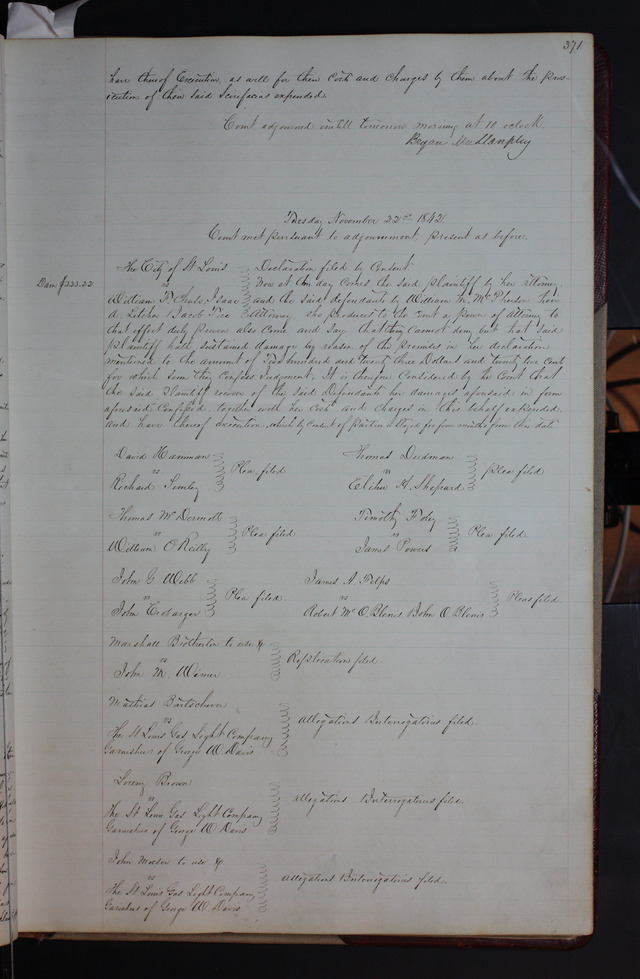 371
have thereof Execution, as well for their Costs and Charges by them about the Pros-
ecution of their said Scirefacias expended.
Court adjourned untill tomorrow morning at 10 oclock
Bryan Mullanphy
Tuesday November 22nd 1842.
Court met pursuant to adjournment, present as before.
The City of St Louis Declaration filed by Consent.
Dam $223.22 vs Now at this day comes the said plaintiff by her attorney
William F. Isaac and the said defendants by William M. McPherson their
A. Letcher Jacob Attorney who produces to the Court a power of Attorney to
that effect duly proven also Come and Say that they Cannot deny but that said
plaintiff hath sustained damage by reason of the premises in her declaration
mentioned to the amount of Two hundred and twenty three Dollars and twenty two Cents
for which sum they Confess Judgment. It is therefore Considered by the Court that
the said Plaintiff recover of the said Defendants her damages aforesaid in form
aforesaid Confessed, together with her Costs and Charges in this behalf expended
and have thereof execution, which by Consent of parties is Stayed for four months from this date
David Hamman
vs Plea filed
Richard
Thomas
vs plea filed
Elihu H. Shepard
Thomas McDermott
vs Plea filed
William O'Reilly
Timothy Foley
vs Plea filed
James Powers
John G Webb
vs Plea filed.
John
James A. Phelps
vs Pleas filed
Robert M O'Blenis & John O'Blenis
Marshall Brotherton to use &c
vs Replication filed.
John M. Wimer
Mathias
vs allegations & Interrogatories filed.
The St Louis Gas Light Company
Garnishee of George W. Davis
Lorenz Brown
vs allegations & Interrogatories filed.
The St Louis Gas Light Company
Garnishee of George W Davis
John to use &c
vs allegations & Interrogatories filed.
The St Louis Gas Light Company
Garnishee of George W. Davis